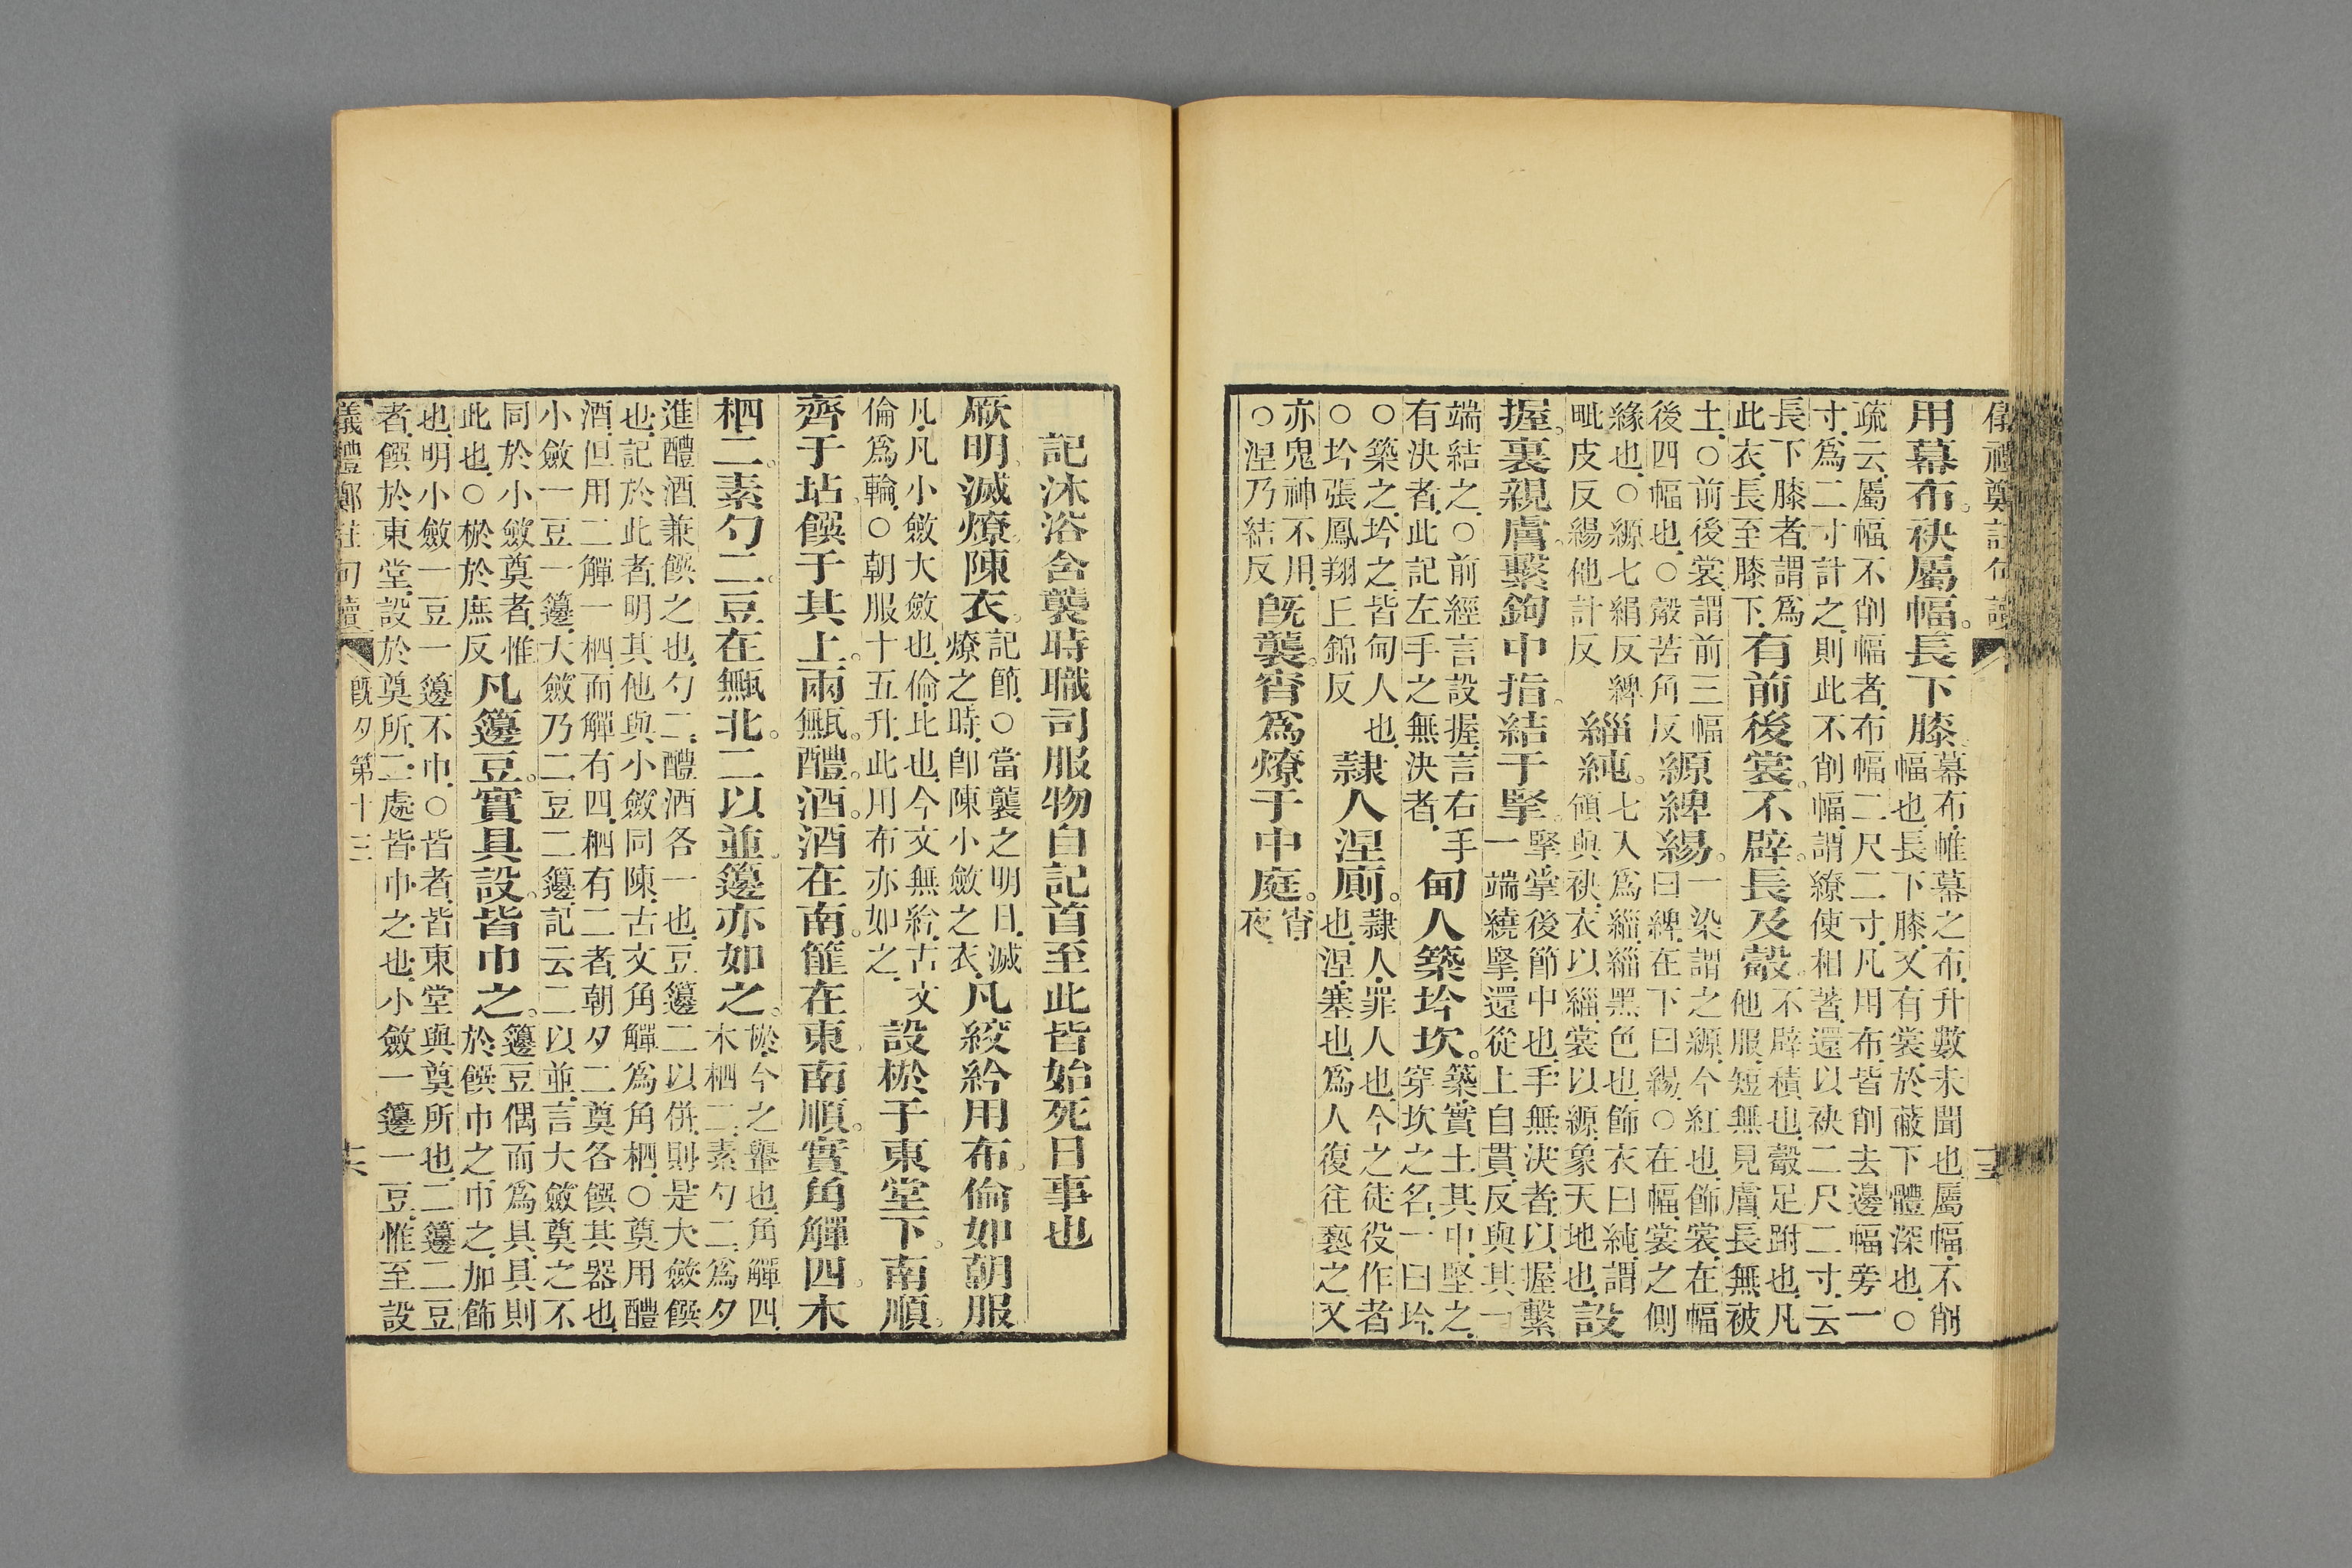 儀禮鄭註句讀
用幕布袂屬幅長下膝幕布帷幕之布升數未聞也屬幅不削
幅也長下膝又有裳於蔽下體深也○
疏云屬幅不削幅者布幅二尺二寸凡用布皆削去邊幅旁一
寸為二寸計之則此不削幅謂繚使相著還以袂二尺二寸云
長下膝者謂為
此衣長至膝下有前後裳不辟長及觳不辟積也觳足跗也凡
他服短無見膚長無被
土○前後裳謂前三幅
後四幅也○觳苦角反縓綼緆一染謂之縓今紅也飾裳在幅
曰綼在下曰緆○在幅裳之側
緣也○縓七絹反綼
毗皮反緆他計反緇純七入為緇緇黑色也飾衣曰純謂
領與袂衣以緇裳以縓象天地也設
握裏親膚繫鉤中指結于掔掔掌後節中也手無決者以握繫
一端繞掔還從上自貫反與其一
端結之○前經言設握言右手
有決者此記左手之無決者甸人築坅坎築實土其中堅之
穿坎之名一曰坅
○築之坅之皆甸人也
○坅張鳳翔丘錦反隸人涅廁隸人罪人也今之徒役作者
也涅塞也為人復往褻之又
亦鬼神不用
○涅乃結反既襲宵為燎于中庭宵
夜
記沐浴含襲時職司服物自記首至此皆始死日事也
厥明滅燎陳衣記節○當襲之明日滅
燎之時卽陳小斂之衣凡絞紟用布倫如朝服
凡凡小斂大斂也倫比也今文無紟古文
倫為輪○朝服十五升此用布亦如之設棜于東堂下南順
齊于坫饌于其上兩甒醴酒酒在南篚在東南順實角觶四木
柶二素勺二豆在甒北二以並籩亦如之棜今之轝也角觶四
木柶二素勺二為夕
進醴酒兼饌之也勺二醴酒各一也豆籩二以併則是大斂饌
也記於此者明其他與小斂同陳古文角觶為角柶○奠用醴
酒但用二觶一柶而觶有四柶有二者朝夕二奠各饌其器也
小斂一豆一籩大斂乃二豆二籩記云二以並言大斂奠之不
同於小斂奠者惟
此也○棜於庶反凡籩豆實具設皆巾之籩豆偶而為具具則
於饌巾之巾之加飾
也明小斂一豆一籩不巾○皆者皆東堂與奠所也二籩二豆
者饌於東堂設於奠所二處皆巾之也小斂一籩一豆惟至設
儀禮鄭註句讀 既夕第十三